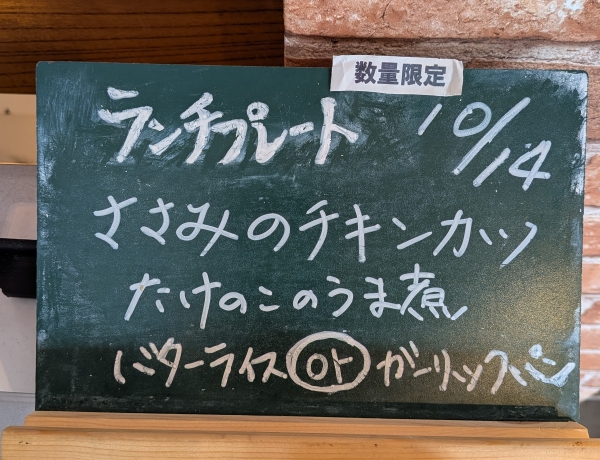 数量限定
ランチプレート 10/14
ささみのチキンカツ
たけのこのうま煮
バターライス or ガーリックパン